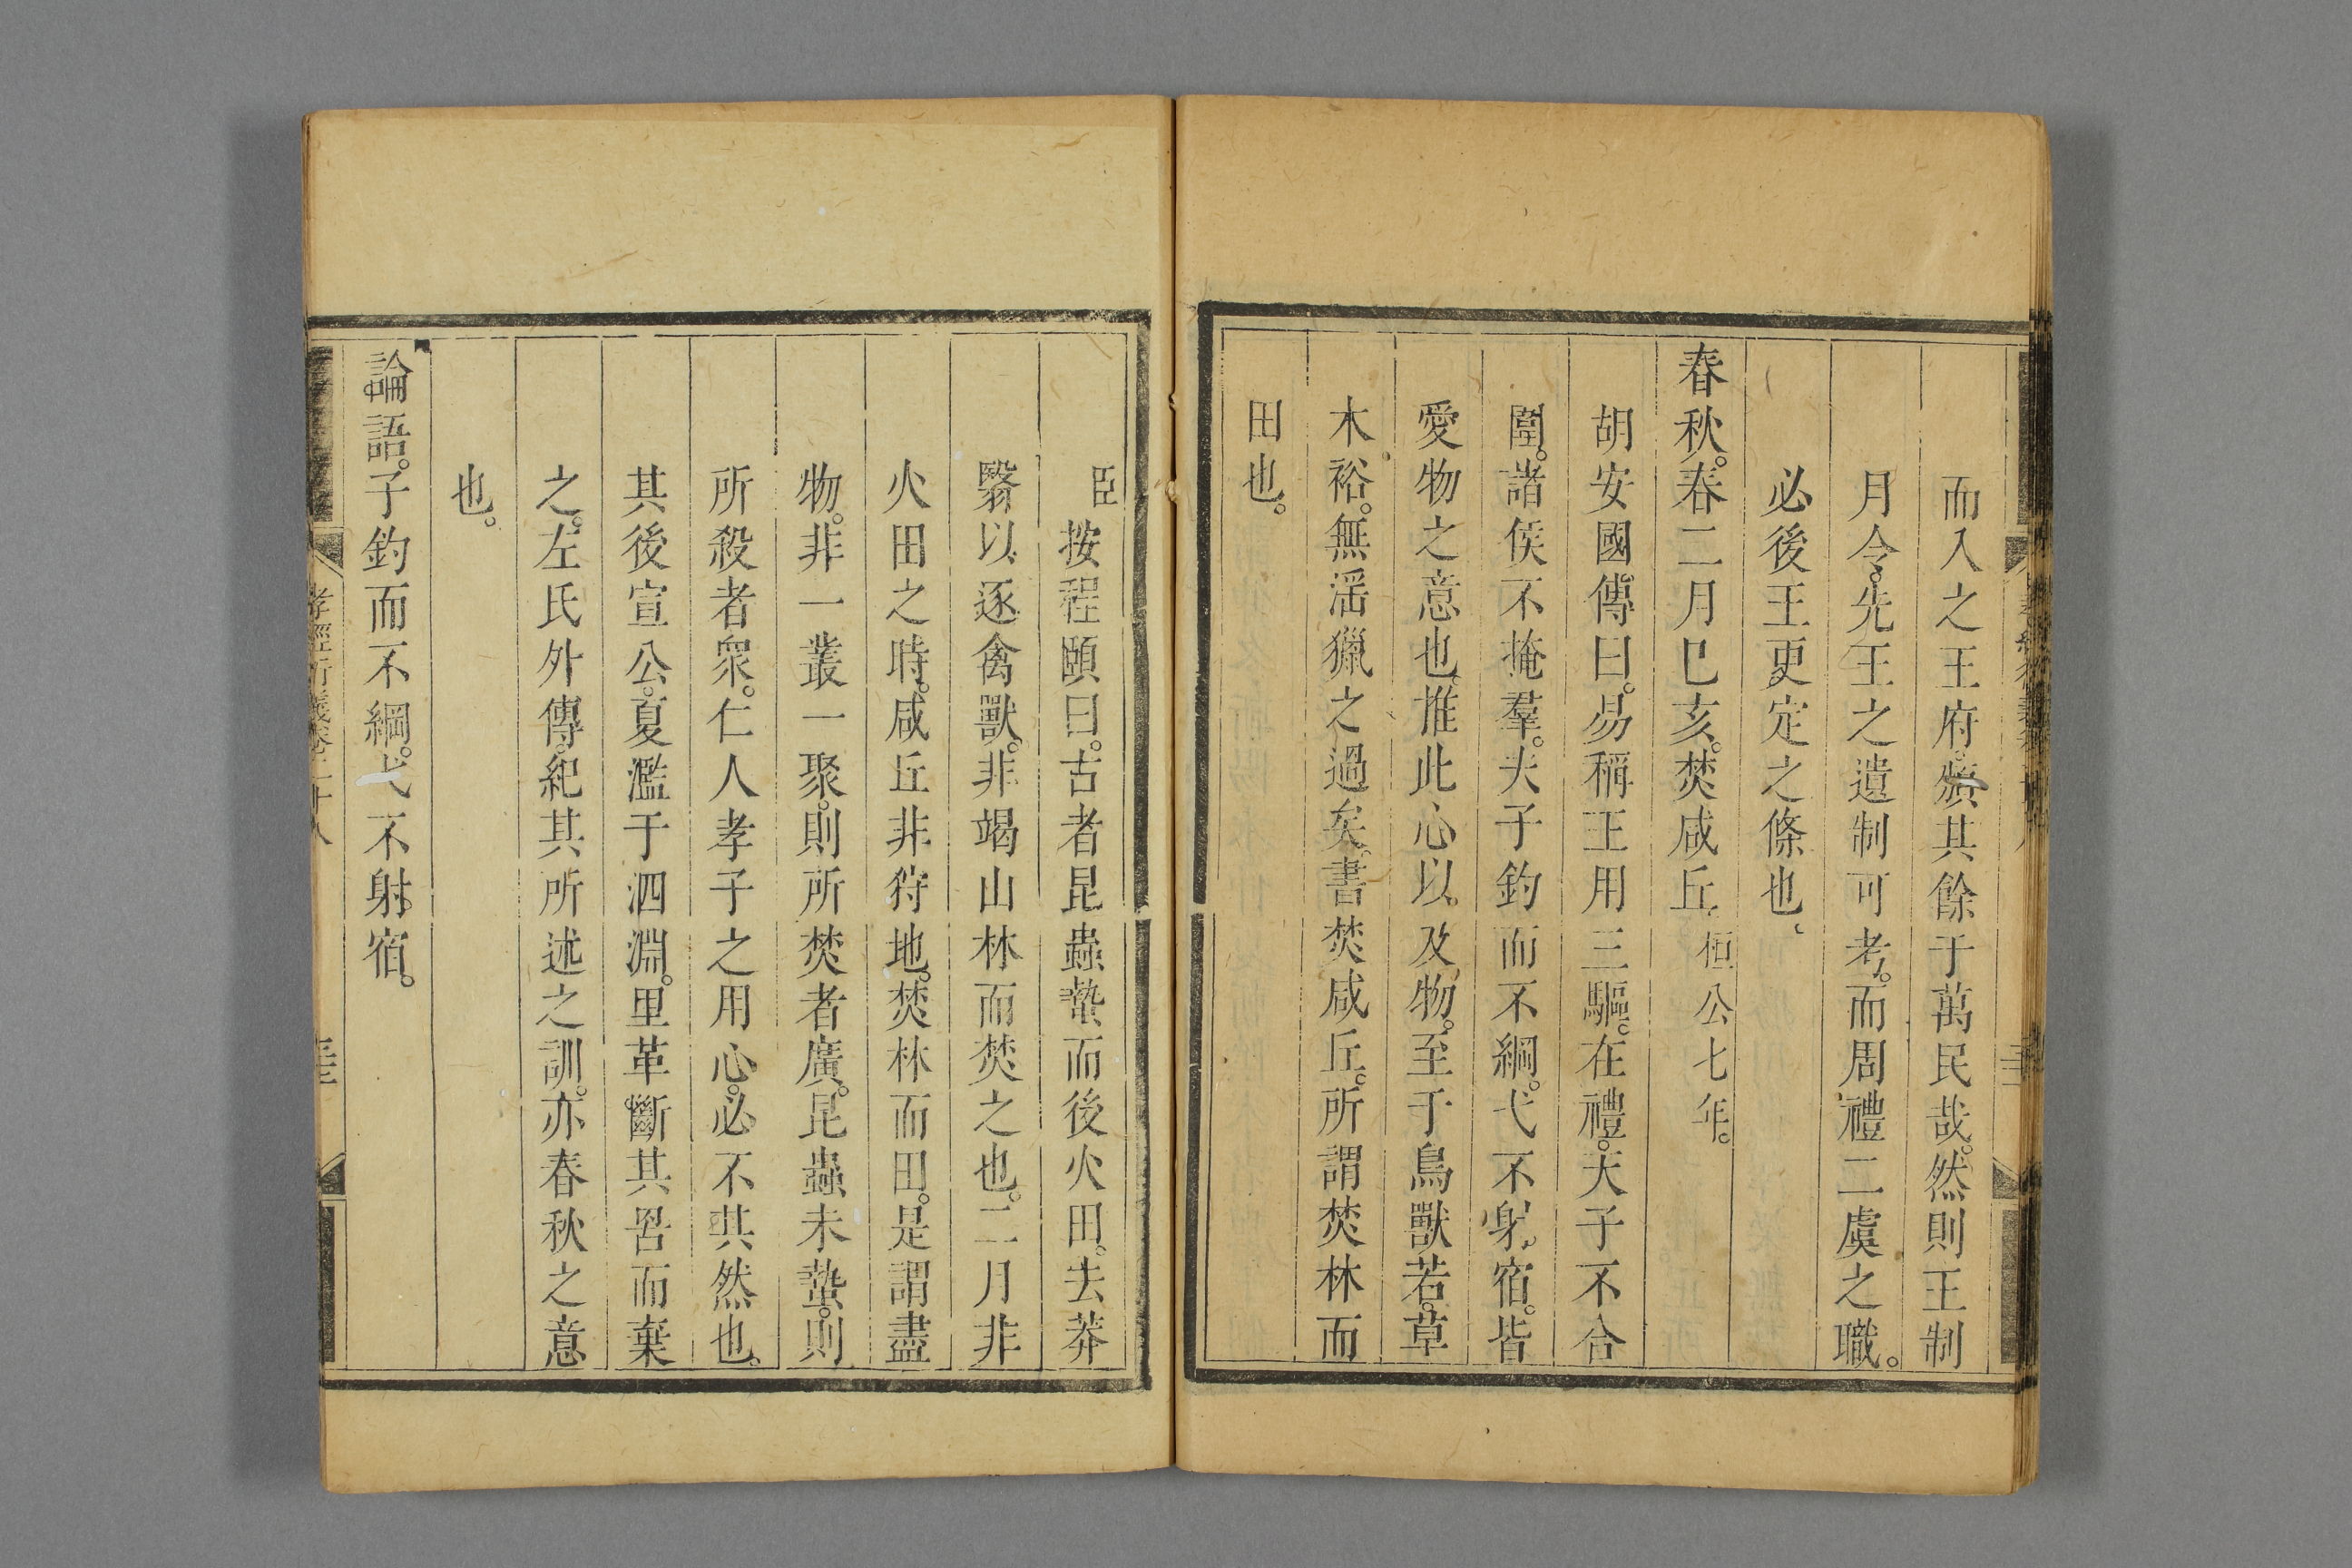 而入之王府。頒其餘于萬民哉。然則王制
月令。先王之遺制可考。而周禮二虞之職。
必後王更定之條也。
春秋。春二月已亥。焚咸丘。桓公七年。
胡安國傳曰。易稱王用三驅。在禮。天子不合
圍。諸侯不掩羣。夫子釣而不綱。弋不射宿。皆
愛物之意也。推此心以及物。至于鳥獸若。草
木裕。無淫獵之過矣。書焚咸丘。所謂焚林而
田也。
臣按程頤曰。古者昆蟲蟄而後火田。去莽
翳以逐禽獸。非竭山林而焚之也。二月非
火田之時。咸丘非狩地。焚林而田。是謂盡
物。非一叢一聚。則所焚者廣。昆蟲未蟄。則
所殺者衆。仁人孝子之用心。必不其然也。
其後宣公。夏濫于泗淵。里革斷其罟而棄
之。左氏外傳。紀其所述之訓。亦春秋之意
也。
論語。子釣而不綱。弋不射宿。
孝經衍義卷二十八